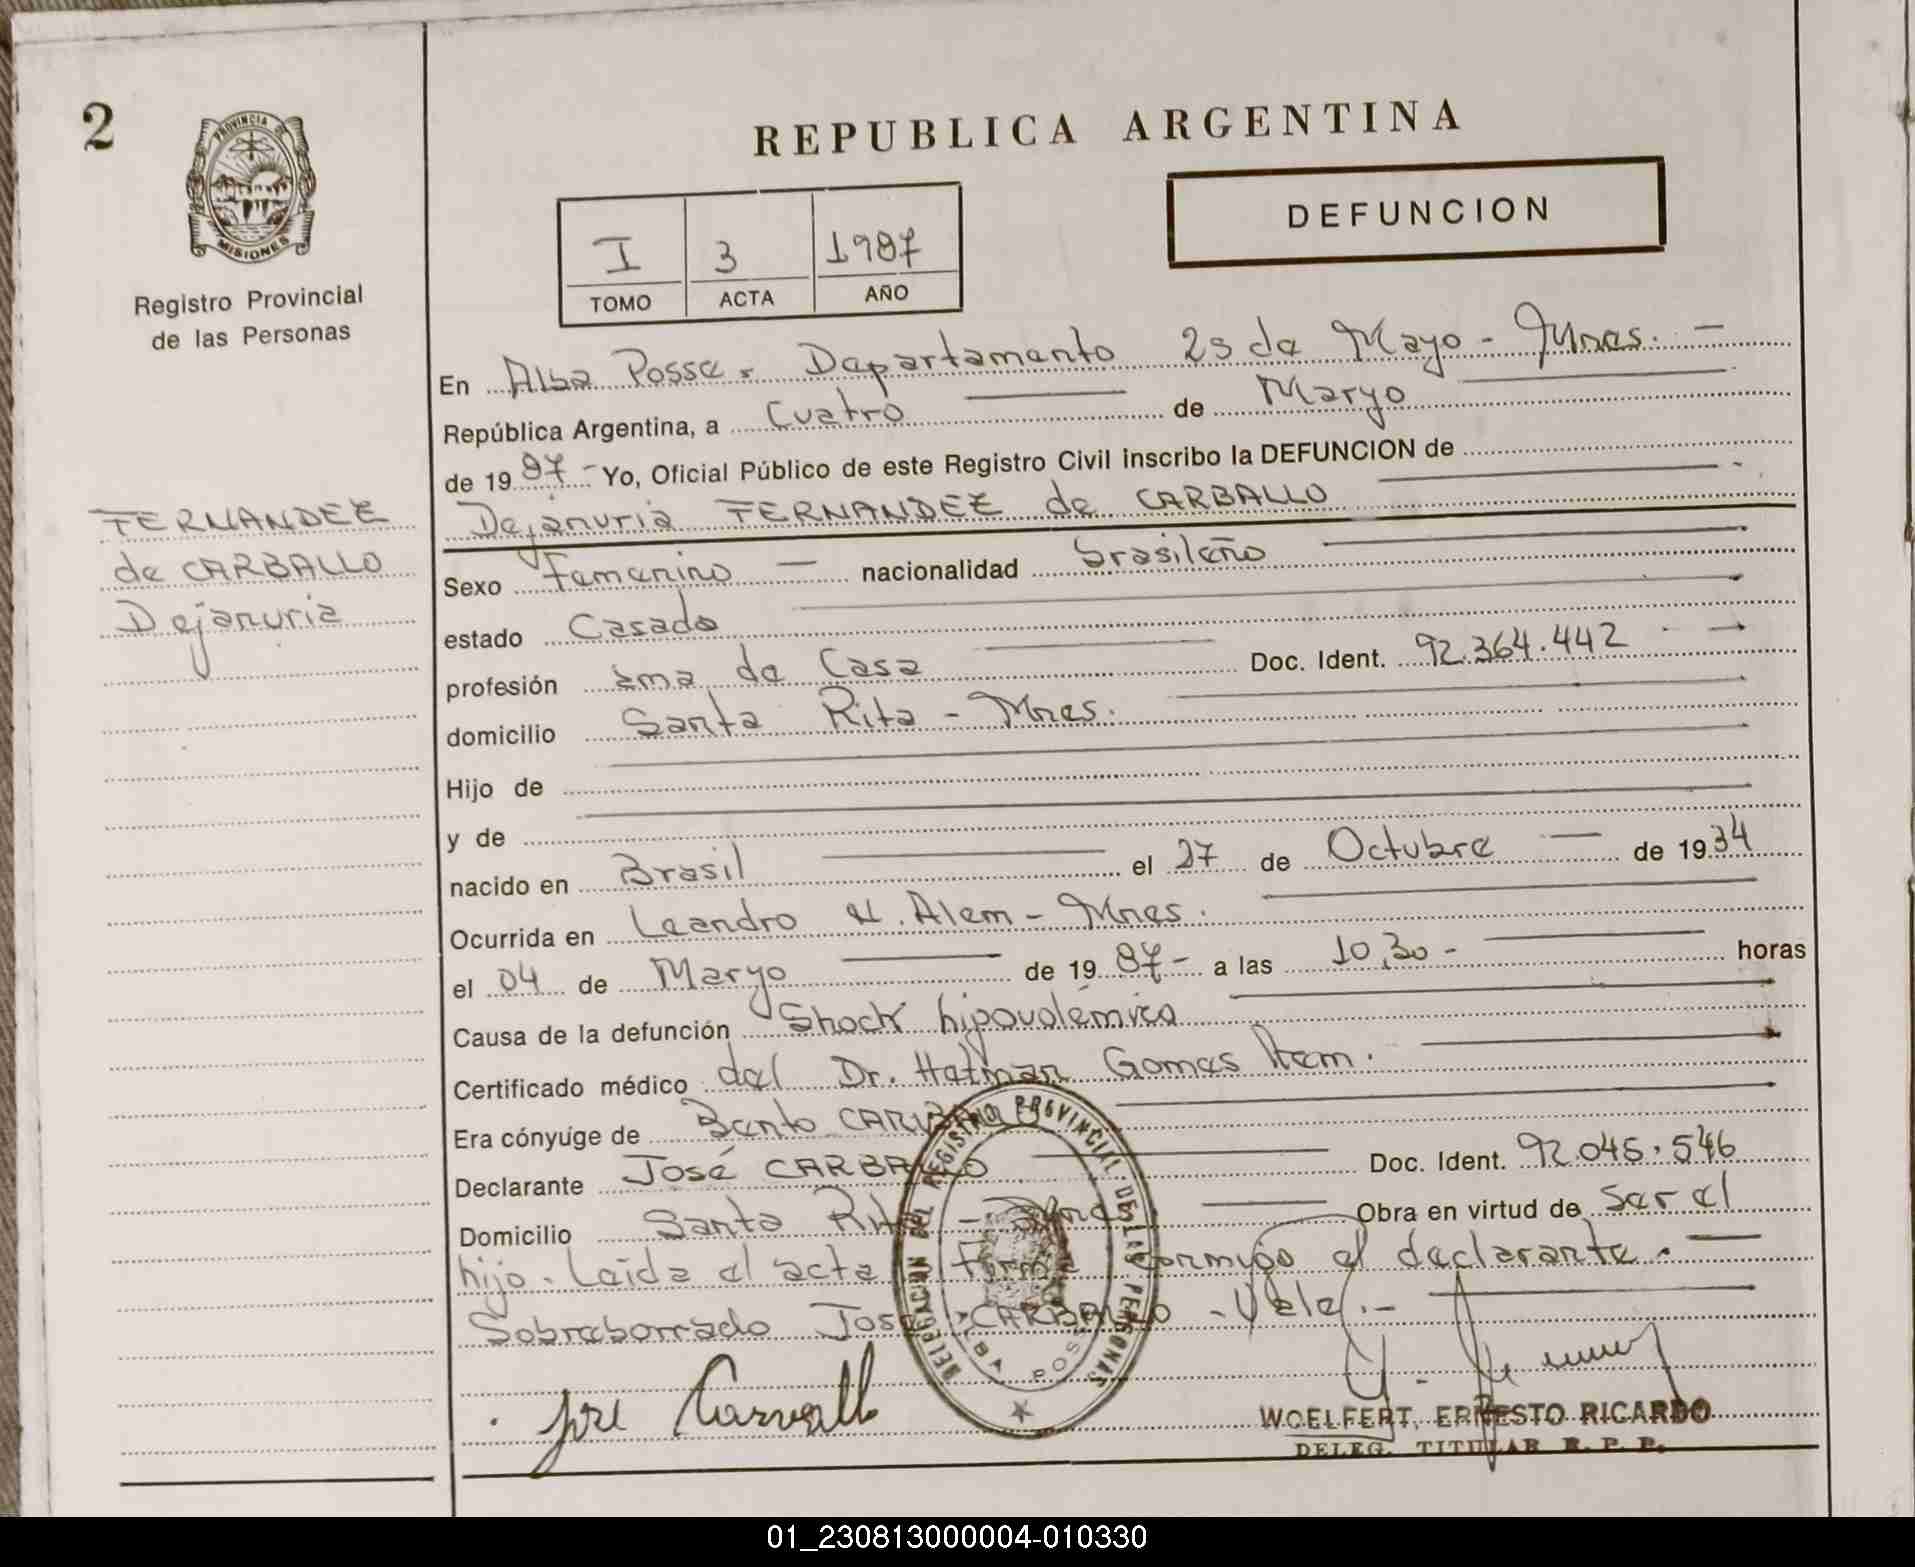 2
PROVINCIA DE
MISIONES
Registro Provincial
de las Personas
REPUBLICA ARGENTINA
DEFUNCION
I 3 1987
TOMO ACTA AÑO
En Alba Posse. Departamento 25 de Mayo - Mnes. -
República Argentina, a Cuatro de Maryo
de 1987- Yo, Oficial Público de este Registro Civil inscribo la DEFUNCION de
Dejanuria FERNANDEZ de CARBALLO
FERNANDEZ
de CARBALLO
Dejanuria
Sexo Femenino - nacionalidad brasileño
estado Casado
profesión ama de Casa Doc. Ident. 92.364.442
domicilio Santa Rita - Mnes.
Hijo de
y de
nacido en Brasil el 27 de Octubre de 1934
Ocurrida en Leandro N. Alem - Mnes.
el 04 de Maryo de 1987- a las 10,30- horas
Causa de la defunción Shock hipovolémico
Certificado médico del Dr. Gomes
Era cónyuge de Bento CARBALLO
Declarante José CARBALLO Doc. Ident. 92.045.546
Domicilio Santa Rita - Mnes. Obra en virtud de ser el
hijo. Leida el acta Firma conmigo el declarante.-
Sobreborrado José CARBALLO - Vale.-
José Carvallo
DELEGACION DEL REGISTRO PROVINCIAL DE LAS PERSONAS
ALBA POSSE
WOELFERT, ERNESTO RICARDO
DELEG. TITULAR R. P. P.
01_230813000004-010330